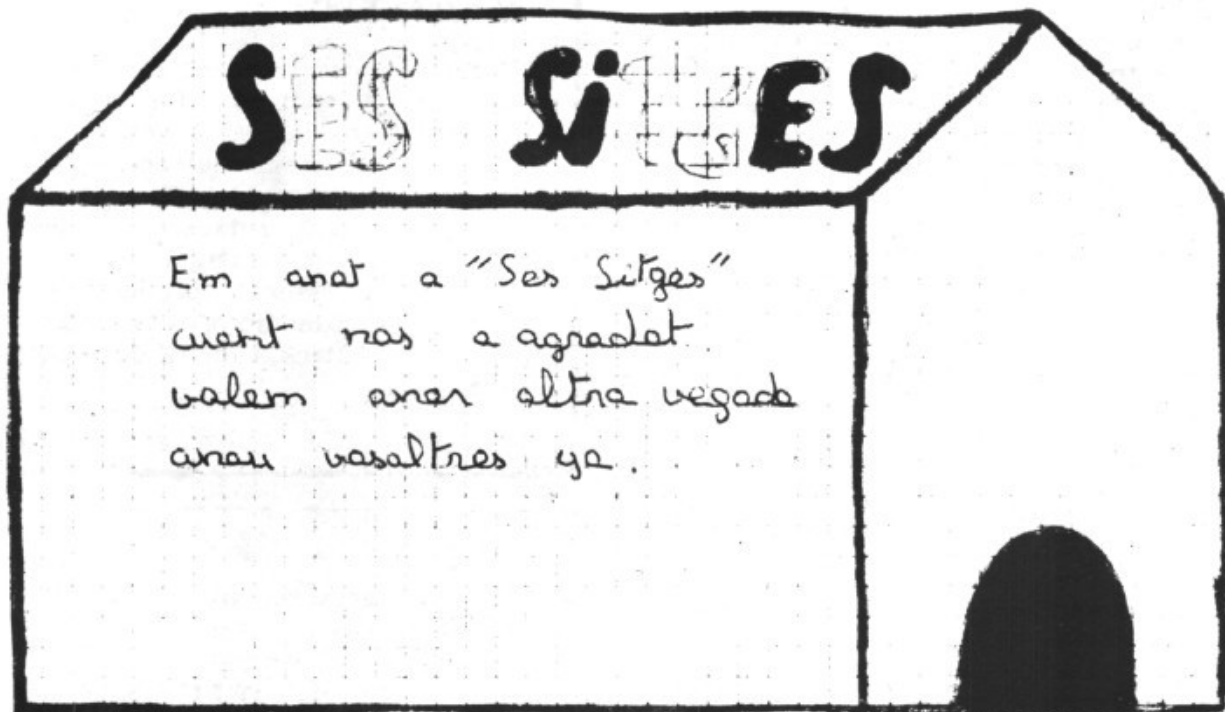 SES SiTGES
Em anat a "Ses Sitges"
cuant nos a agradat
valem anar altra vegada
anau vosaltres ya.